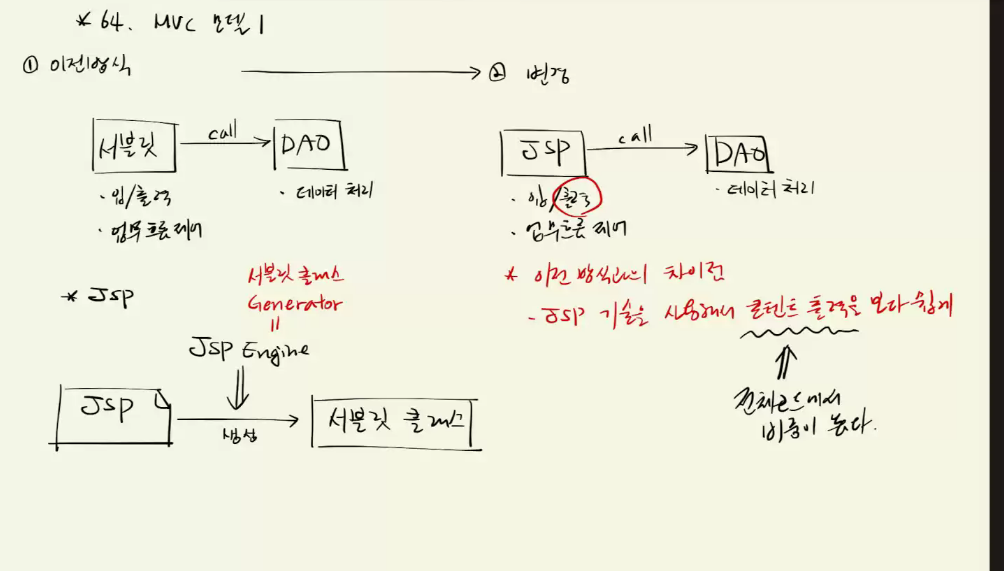 * 64. MVC 모델 1
① 이전방식
② 변경
서블릿
call
DAO
· 입/출력
· 업무흐름 제어
· 데이터 처리
JSP
call
DAO
· 입/출력
· 업무흐름 제어
· 데이터 처리
* 이전 방식과의 차이점
- JSP 기술을 사용해서 콘텐트 출력을 보다 쉽게
전체코드에서
비중이 높다.
* JSP
서블릿 클래스
Generator
=
JSP Engine
JSP
생성
서블릿 클래스